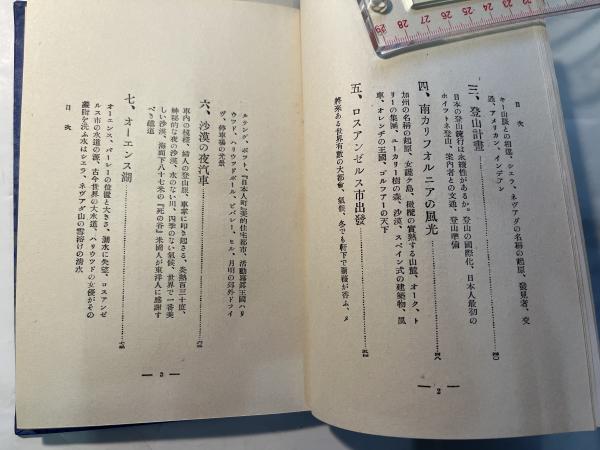 目次
キー山脈との相違、シェラ、ネヴアダの名稱の起原、發見者、交
通、アメリカン、インデアン
三、登山計畫
日本の登山流行は永續性があるか。登山の國際化、日本人最初の
ホイツトネ登山、案内者との文通、登山準備
四、南カリフオルニアの風光
加州の名稱の起原、女護ケ島、橄欖の實熟する山麓、オーク、ト
リーの集團、ユーカリー樹の森、沙漠、スペイン式の建築物、風
車、オレンヂの王國、ゴルフアーの天下
五、ロスアンゼルス市出發
將來ある世界有數の大都會、氣候、冬でも軒下で薔薇が香ふ、メ
2
ルテング、ポツト、『日本人町』美的住宅都市、活動寫眞王國ハリ
ウツド、ハリウツドボール、ビバレー、ヒル、月明の郊外ドライ
ヴ、停車場の光景
六、沙漠の夜汽車
車内の模樣、婦人の登山服、車掌に叩き起さる、炎熱百三十度、
神秘的な夜の沙漠、水のない川、四季のない氣候、世界で一番美
しい沙漠、海面下八十七米の『死の谷』米國人が東洋人に感謝す
べき鐵道
七、オーエンス湖
オーエンス、バーレーの位置と大きさ、湖水に失望、ロスアンゼ
ルス市の水道の源、古今世界の大水道、ハリウツドの女優がその
嬌術を洗ふ水はシェラ、ネヴアダ山の雪溶けの清水
目次
3
29 28 27 26 25 24 23 22